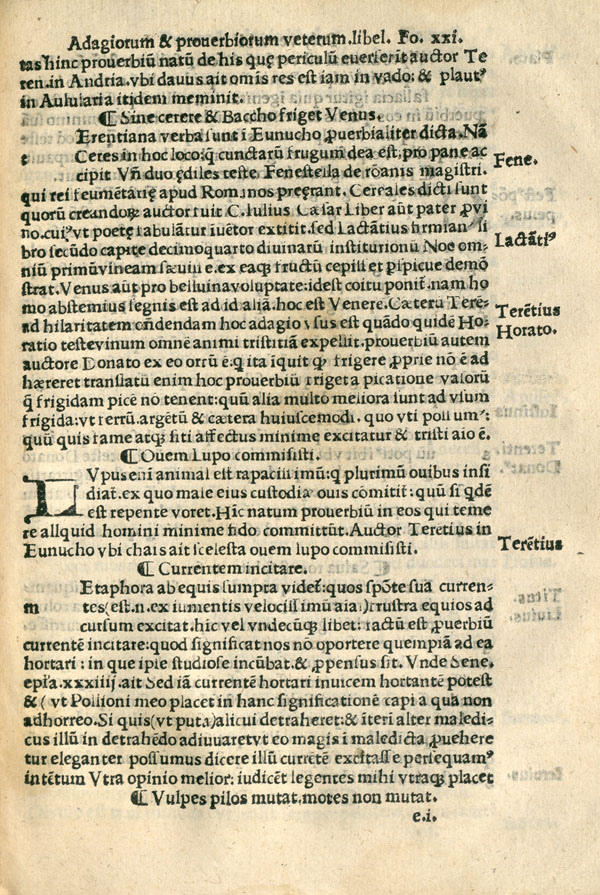 Adagiorum & prouerbiorum veterum .libel. Fo. xxi.
tas hinc prouerbiũ natũ de his quę periculũ euerserit auctor Te
ren. in Andria. vbi dauus ait omis res est iam in vado: & plaut⁹
in Aulularia itidem meminit.
¶ Sine cerere & Baccho friget Venus.
Erentiana verba sunt ĩ Eunucho ꝓuerbialiter dicta. Nã
t Ceres in hoc loco: ꝗ cunctarũ frugum dea est: pro pane ac
cipit Vñ duo ędiles teste Fenestella de roanis magistri.
Fene.
qui rei frumẽtarię apud Romanos pręerant. Cereales dicti sunt
quorũ creandoꝝ auctor fuit C. Iulius Cæsar Liber aũt pater ꝓ vi
no. cui⁹ vt poetę fabulãtur iuẽtor extitit. sed Lactãtius firmian⁹ li
bro secũdo capite decimoquarto diuinarũ institutionũ Noe om-
Lactãti⁹
niũ primũ vineam sæuille. ex eaqꝫ fructũ cepisse
strat. Venus aũt pro belluina voluptate: idest coitu ponit̃. nam ho
mo abstemius segnis est ad id aliã. hoc est Venere. Cæteru Terẽ-
Terẽtius
ad hilaritatem cñdendam hoc adagio vsus est quãdo quidẽ Ho-
Horato.
ratio teste vinum omnẽ animi tristitiã expellit. prouerbiũ autem
auctore Donato ex eo orrũ ẽ: ꝗ ita ĩquit ꝗ frigere ꝓprie nõ ẽ ad
hæreret translatũ enim hoc prouerbiũ friget a picatione vasorũ
ꝗ̃ frigidam picẽ nõ tenent: quũ alia multo meliora sunt ad vsum
frigida: vt ferrũ. argẽtũ & cætera huiuscemodi. quo vti possum⁹:
quũ quis fame atqꝫ siti affectus minime excitatur & tristi aio ẽ.
¶ Ouem Lupo commisisti.
L Vpus eni animal est rapacissimũ: ꝗ plurimũ ouibus insi
diat̃. ex quo male eius custodia ouis cõmitit̃: quũ si ꝗdẽ
est repente voret. Hĩc natum prouerbiũ in eos qui teme
re aliquid homini minime fido committũt. Auctor Teretius in
Eunucho vbi chais ait scelesta ouem lupo commisisti.
Terẽtius
¶ Currentem incitare.
Etaphora ab equis sumpta videt̃: quos spõte sua curren-
m tes (est. n. ex iumentis velocissimũ aial) frustra equios ad
cursum excitat. hic vel vndecũqꝫ libet: factũ est ꝓuerbiũ
currentẽ incitare: quod significat nos nõ oportere quempiã ad ea
hortari: in que ipse studiose incũbat. & ꝓpensus sit. Vnde Sene.
epĩa. xxxiiij. ait Sed iã currentẽ hortari inuicem hortantẽ potest
& (vt Pollioni meo placet in hanc significationẽ capi a qua non
adhorreo. Si quis (vt puta) alicui detraheret: & iteri alter maledi-
cus illũ in detrahẽdo adiuuaret vt eo magis ĩ maledicta ꝓuehere
tur eleganter possumus dicere illũ curretẽ excitasse persequam⁹
intẽtum Vtra opinio melior: iudicẽt legentes mihi vtraqꝫ placet
¶ Vulpes pilos mutat. motes non mutat.
e.i.